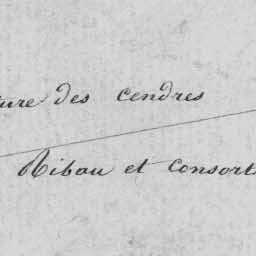 ure des cendres
Ribau et consorts